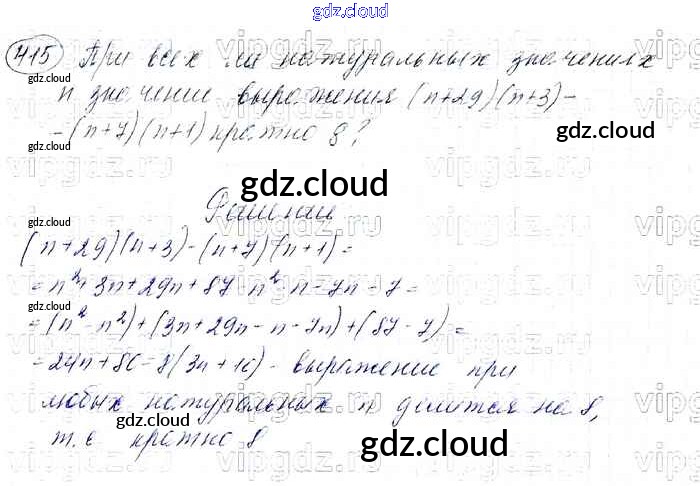 gdz.cloud
415 При всех ли натуральных значениях
n значение выражения (n+29)(n+3)-
-(n+7)(n+1) кратно 8?
Решение
(n+29)(n+3)-(n+7)(n+1)=
=n²+3n+29n+87-n²-n-7n-7=
=(n²-n²)+(3n+29n-n-7n)+(87-7)=
=24n+80=8(3n+10) - выражение при
любых натуральных n делится на 8,
т.е кратно 8
gdz.cloud
gdz.cloud
gdz.cloud
gdz.cloud
gdz.cloud
gdz.cloud
gdz.cloud
gdz.cloud
gdz.cloud